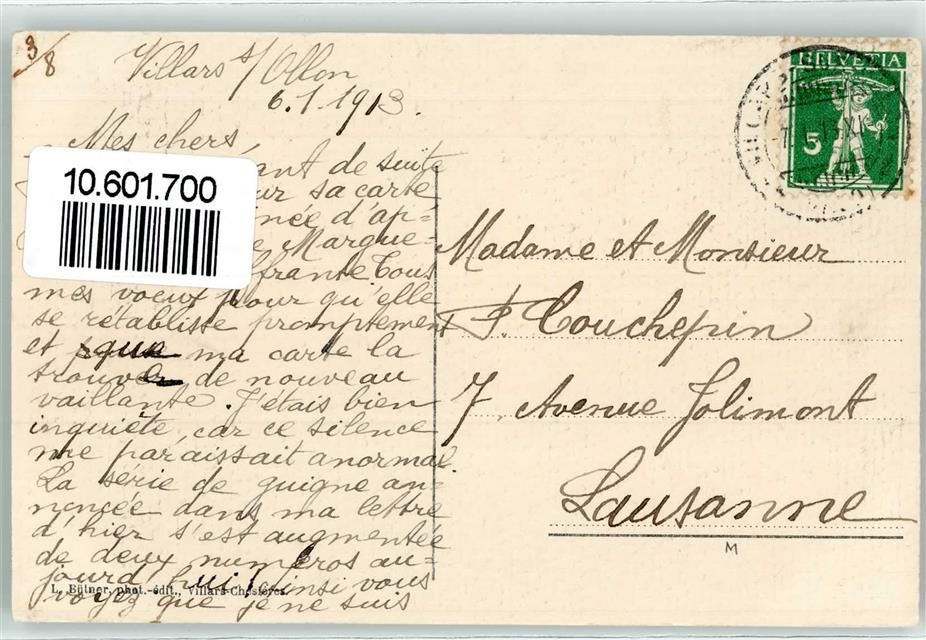 3/8
Villars s/Ollon
6.1.1913.
Mes chers,
ant de suite
ur sa carte
née d'ap-
Margue-
ffrante. Tous
mes voeux pour qu'elle
se rétablisse promptement
et que ma carte la
trouve de nouveau
vaillante. J'étais bien
inquiète, car ce silence
me paraissait anormal.
La série de guigne an-
noncée dans ma lettre
d'hier s'est augmentée
de deux numéros au-
jourd'hui, ainsi vous
voyez que je ne suis
L. Bütner, phot.-édit., Villars-Chesières.
10.601.700
HELVETIA
5
Madame et Monsieur
Couchepin
7, Avenue Jolimont
Lausanne
M